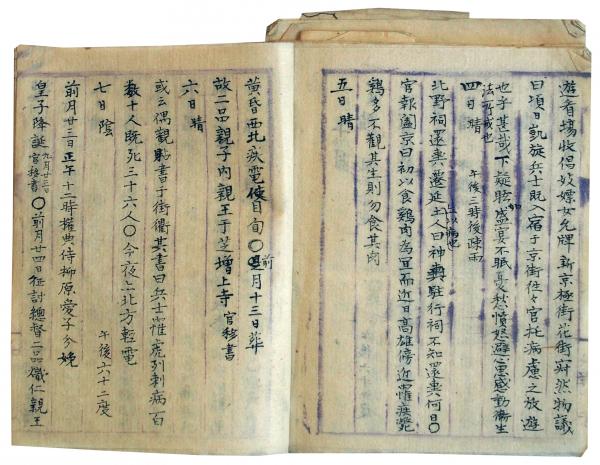 遊看場收倡妓嫖女允牌新京極街花街寂然物議
曰頃日凱旋兵士既入宿于京街往々官托病慮之放遊
也予甚惑下疑眩盛宴不眠憂愁憤怒避心思感動衛生
法所戒也
四日晴
午後三時後疎雨
北野祠還輿遷延土人曰神輿駐行祠不知還輿何日〇
官報闔京曰初以食鷄肉為宜而近日高雄傍近罹疾斃
鷄多不觀其生則勿食其肉
五日晴
黄昏西北疾電使目旬〇前月十三日葬
故二品親子内親王于芝增上寺官移書
六日晴
或云偶觀貼書于街衢其書曰兵士罹虎列剌病百
数十人既死三十六人〇今夜亦北方輕電
七日陰
午後六十二度
前月廿三日正午十二時権典侍柳原愛子分娩
皇子降誕九月廿三日官移書〇前月廿四日征討總督二品熾仁親王